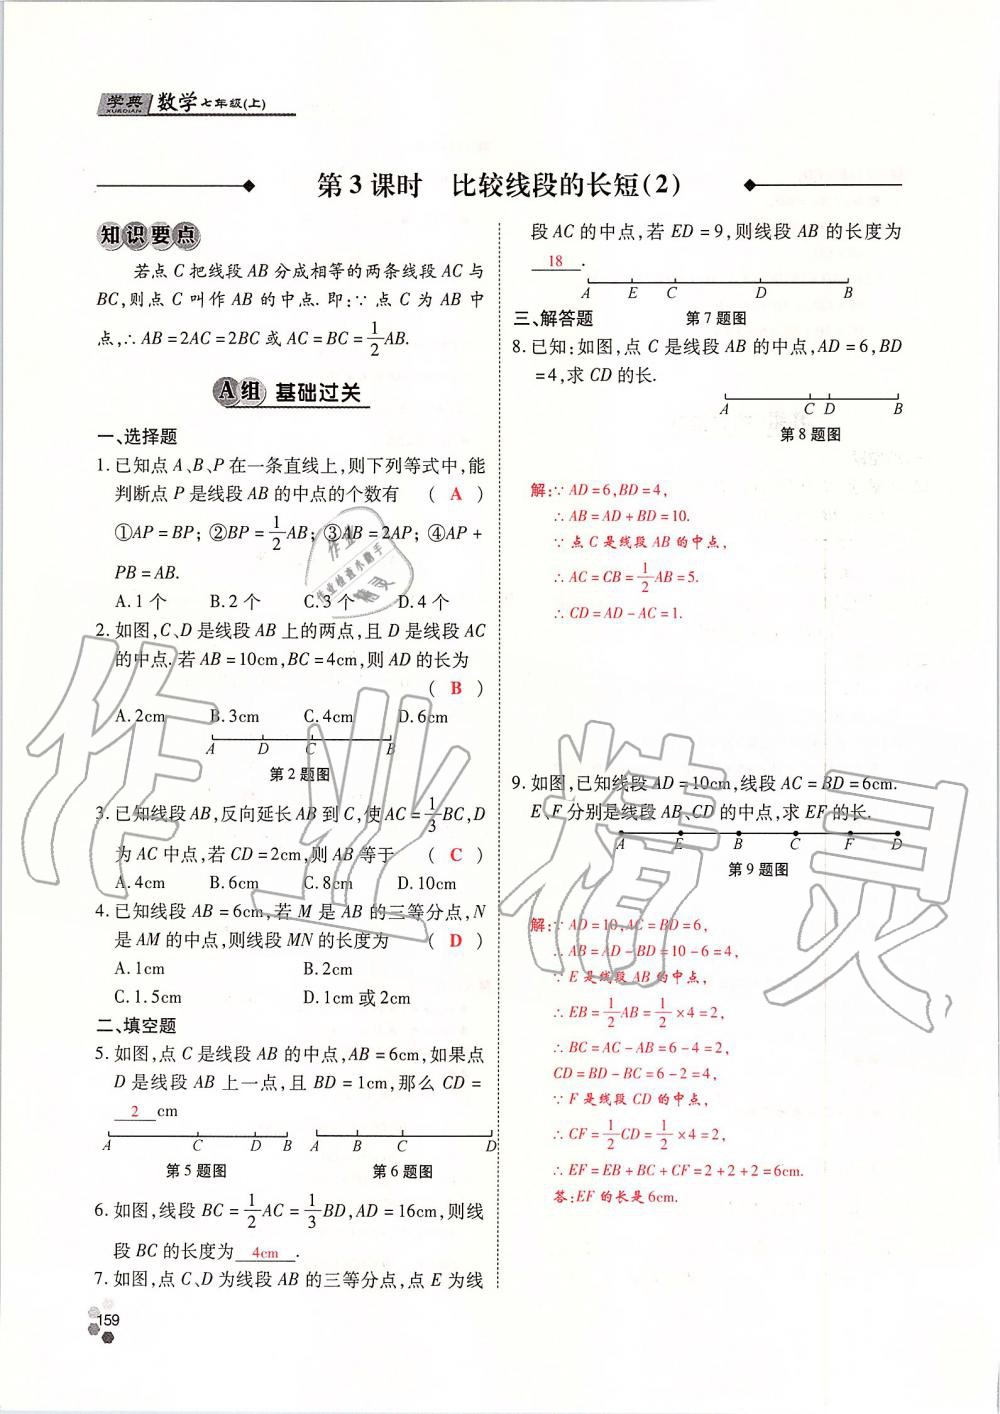 学典 数学 七年级(上)
XUEDIAN
第3课时 比较线段的长短(2)
知识要点
若点C把线段AB分成相等的两条线段AC与
BC,则点C叫作AB的中点.即:∵点C为AB中
点,∴AB=2AC=2BC或AC=BC=1/2AB.
A组 基础过关
一、选择题
1.已知点A、B、P在一条直线上,则下列等式中,能
判断点P是线段AB的中点的个数有 ( A )
①AP=BP; ②BP=1/2AB; ③AB=2AP; ④AP+
PB=AB.
A.1个 B.2个 C.3个 D.4个
2.如图,C、D是线段AB上的两点,且D是线段AC
的中点.若AB=10cm,BC=4cm,则AD的长为
( B )
A.2cm B.3cm C.4cm D.6cm
A D C B
第2题图
3.已知线段AB,反向延长AB到C,使AC=1/3BC,D
为AC中点,若CD=2cm,则AB等于 ( C )
A.4cm B.6cm C.8cm D.10cm
4.已知线段AB=6cm,若M是AB的三等分点,N
是AM的中点,则线段MN的长度为 ( D )
A.1cm B.2cm
C.1.5cm D.1cm或2cm
二、填空题
5.如图,点C是线段AB的中点,AB=6cm,如果点
D是线段AB上一点,且BD=1cm,那么CD=
2 cm
A C D B A B C D
第5题图 第6题图
6.如图,线段BC=1/2AC=1/3BD,AD=16cm,则线
段BC的长度为 4cm .
7.如图,点C、D为线段AB的三等分点,点E为线
159
段AC的中点,若ED=9,则线段AB的长度为
18 .
A E C D B
第7题图
三、解答题
8.已知:如图,点C是线段AB的中点,AD=6,BD
=4,求CD的长.
A C D B
第8题图
解:∵AD=6,BD=4,
∴AB=AD+BD=10.
∵点C是线段AB的中点,
∴AC=CB=1/2AB=5.
∴CD=AD-AC=1.
9.如图,已知线段AD=10cm,线段AC=BD=6cm.
E、F分别是线段AB、CD的中点,求EF的长.
A E B C F D
第9题图
解:∵AD=10,AC=BD=6,
∴AB=AD-BD=10-6=4,
∵E是线段AB的中点,
∴EB=1/2AB=1/2×4=2,
∴BC=AC-AB=6-4=2,
CD=BD-BC=6-2=4,
∵F是线段CD的中点,
∴CF=1/2CD=1/2×4=2,
∴EF=EB+BC+CF=2+2+2=6cm.
答:EF的长是6cm.
作业精灵
作业
作业检查小助手
精灵